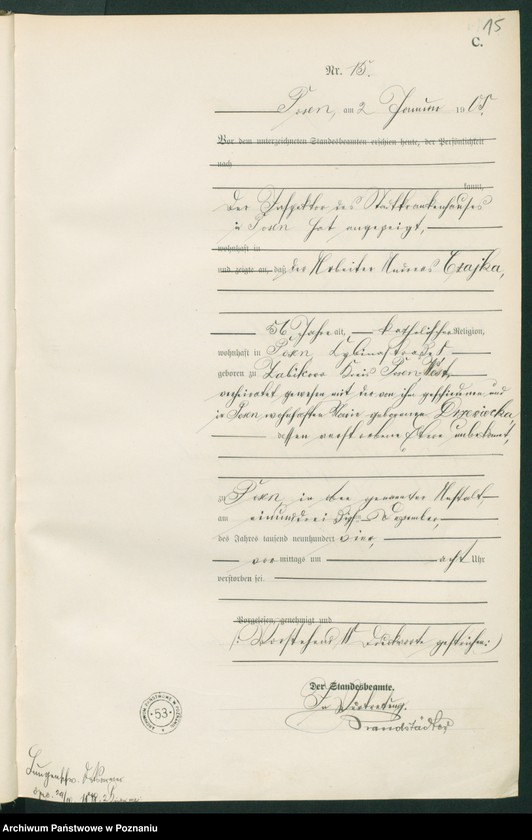 15
C.
Nr. 15.
Posen, am 2 Januar 1905.
Vor dem unterzeichneten Standesbeamten erschien heute, der Persönlichkeit
nach
kannt,
Der Inspektor des Stadtkrankenhauses
in Posen hat angezeigt,
wohnhaft in
und zeigte an, daß der Arbeiter Andreas Czajka,
56 Jahre alt, katholischer Religion,
wohnhaft in Posen
geboren zu Zabikowo Kreis Posen West,
verheirathet gewesen mit der von ihm geschiedenen und
in Posen wohnhaften Marie geborenen
dessen verstorbene Eltern unbekannt,
zu Posen, in oben genannter Anstalt
am einunddreißigsten Dezember,
des Jahres tausend neunhundert vier,
vor mittags um acht Uhr
verstorben sei.
Vorgelesen, genehmigt und
(: Vorstehend 11 Druckworte gestrichen:)
Der Standesbeamte.
In Vertretung.
Brandstädter
53
Archiwum Państwowe w Poznaniu